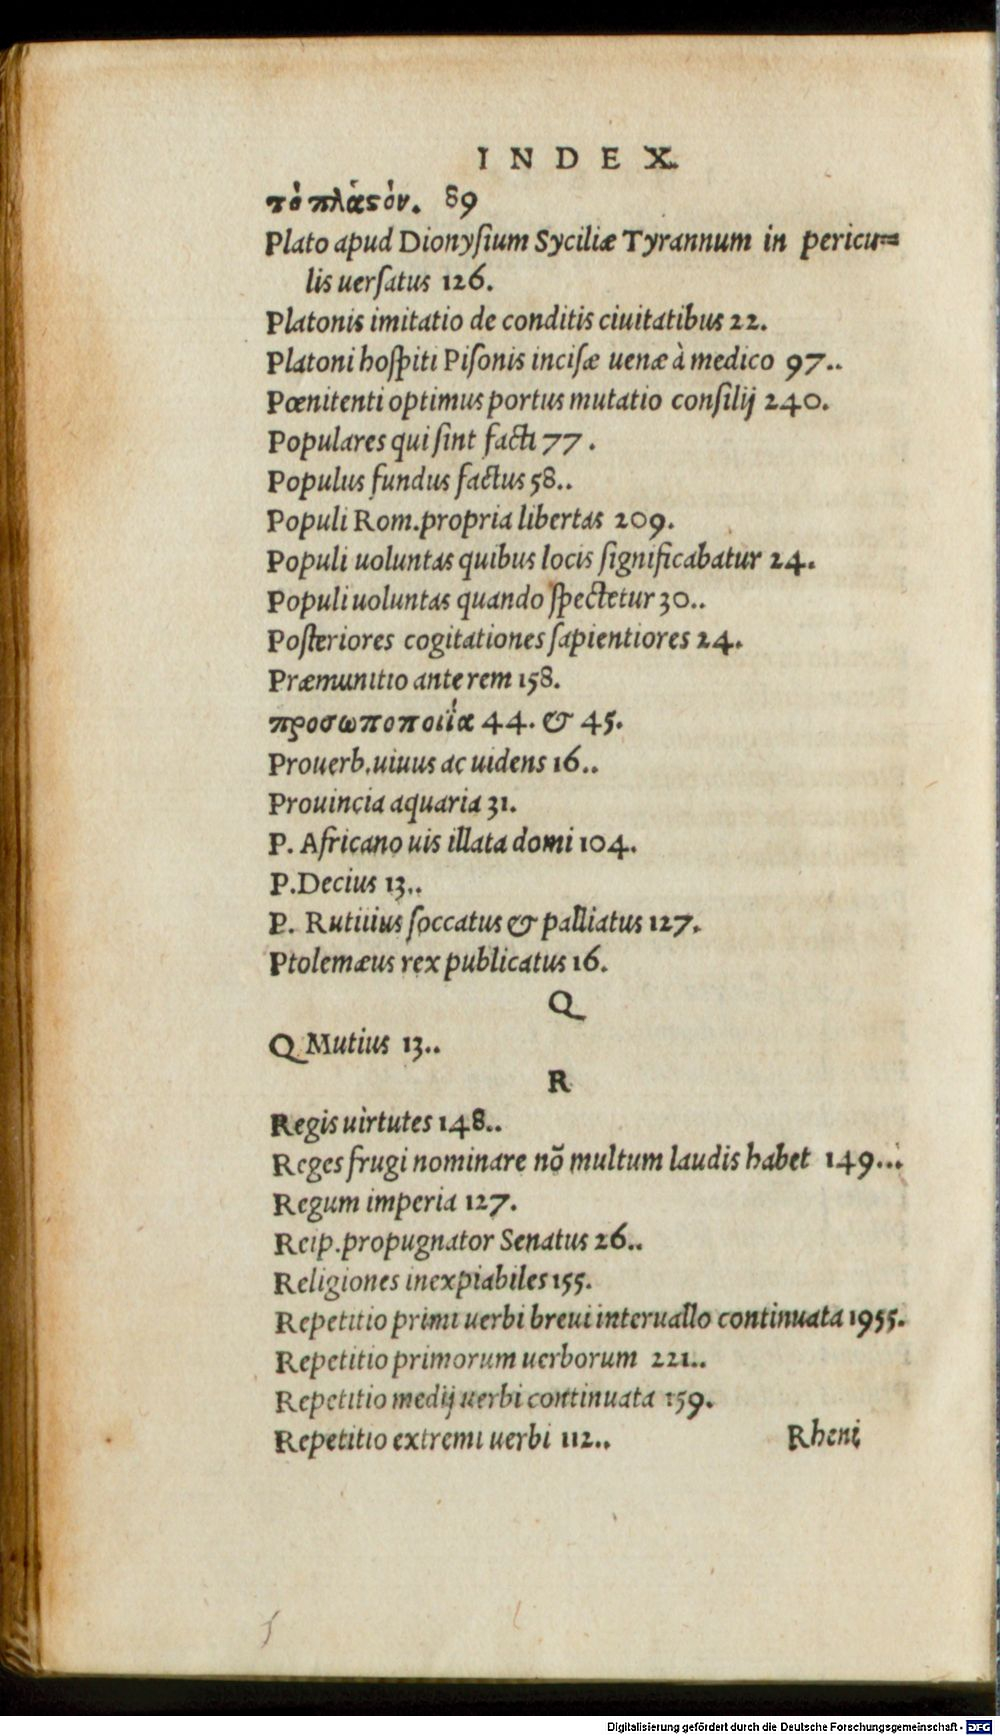 INDEX.
τὸ πλάςόν. 89
Plato apud Dionyſium Syciliæ Tyrannum in pericu=
lis uerſatus 126.
Platonis imitatio de conditis ciuitatibus 22.
Platoni hoſpiti Piſonis inciſæ uenæ à medico 97..
Pœnitenti optimus portus mutatio conſilij 240.
Populares qui ſint facti 77.
Populus fundus factus 58..
Populi Rom.propria libertas 209.
Populi uoluntas quibus locis ſignificabatur 24.
Populi uoluntas quando ſpectetur 30..
Poſteriores cogitationes ſapientiores 24.
Præmunitio ante rem 158.
προσωποποιΐα 44. & 45.
Prouerb.uiuus ac uidens 16..
Prouincia aquaria 31.
P. Africano uis illata domi 104.
P.Decius 13..
P. Rutilius ſoccatus & palliatus 127.
Ptolemæus rex publicatus 16.
Q
Q Mutius 13..
R
Regis uirtutes 148..
Reges frugi nominare nõ multum laudis habet 149...
Regum imperia 127.
Reip.propugnator Senatus 26..
Religiones inexpiabiles 155.
Repetitio primi uerbi breui interuallo continuata 1955.
Repetitio primorum uerborum 221..
Repetitio medij uerbi continuata 159.
Repetitio extremi uerbi 112..
Rheni
Digitalisierung gefördert durch die Deutsche Forschungsgemeinschaft - DFG